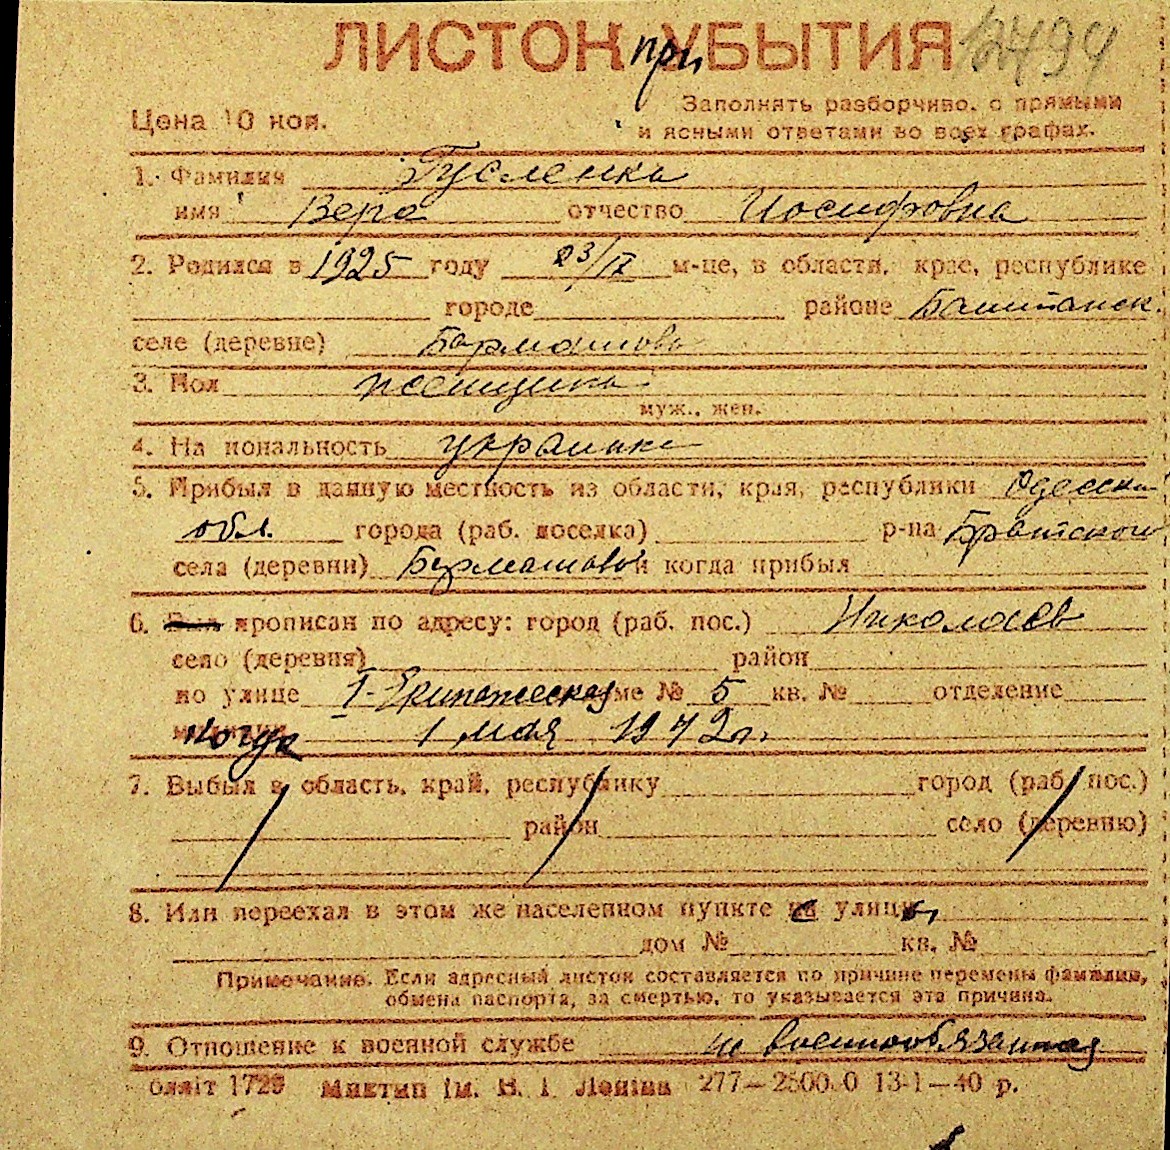 ЛИСТОК при УБЫТИЯ 12494
Цена 10 коп.
Заполнять разборчиво, с прямыми
и ясными ответами во всех графах.
1. Фамилия Гусленка
имя Вера отчество Иосифовна
2. Родился в 1925 году 23/IX м-це, в области, крае, республике
городе районе Баштанск.
селе (деревне) Бармашово
3. Пол женщина
муж., жен.
4. Национальность украинка
5. Прибыл в данную местность из области, края, республики Одесской
обл. города (раб. поселка) р-на Братского
села (деревни) Бармашово и когда прибыл
6. Был прописан по адресу: город (раб. пос.) Николаев
село (деревня) район
по улице I-Экипажеская доме № 5 кв. № отделение
милиции когда 1 мая 1942 г.
7. Выбыл в область, край, республику город (раб. пос.)
район село (деревню)
8. Или переехал в этом же населенном пункте с улицы
дом № кв. №
Примечание. Если адресный листок составляется по причине перемены фамилии,
обмена паспорта, за смертью, то указывается эта причина.
9. Отношение к военной службе не военнообязанная
блліт 1729 Миктип ім. В. І. Леніна 277—2500.0 13-1—40 р.